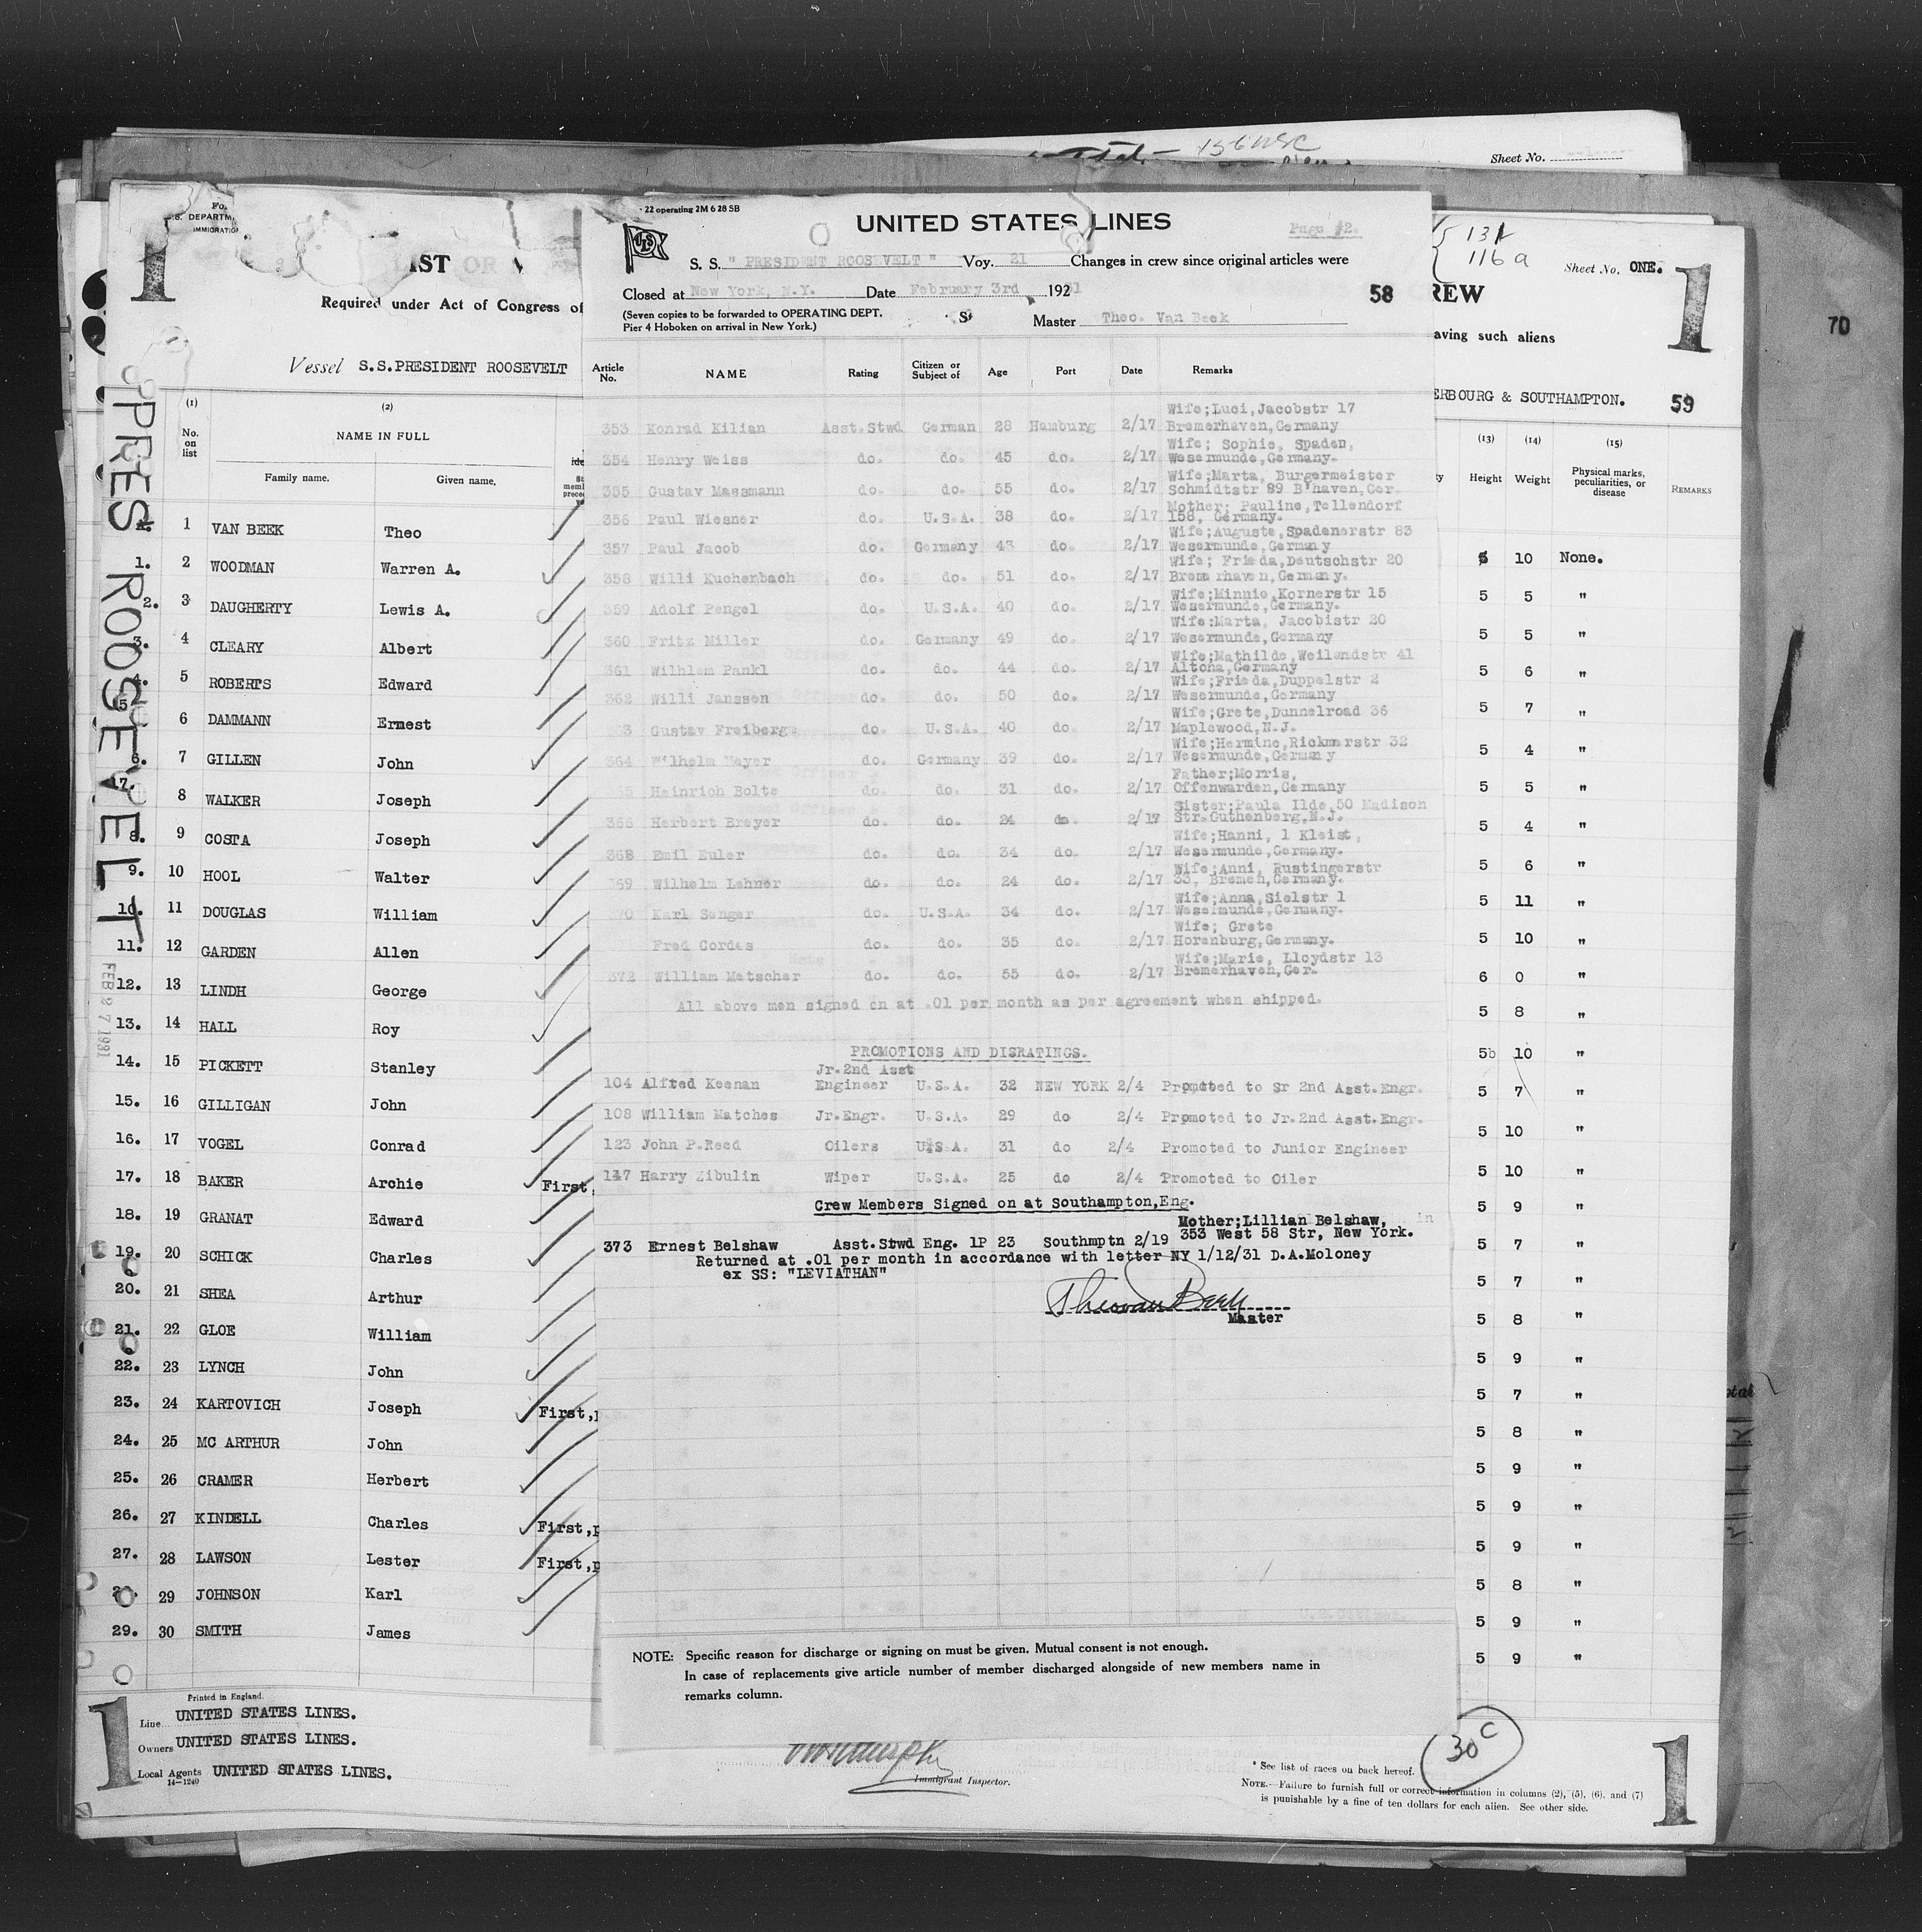 156 USC
Sheet No.
U.S. DEPARTM
IMMIGRATION
1
LIST OR
Required under Act of Congress of
Vessel S.S.PRESIDENT ROOSEVELT
PRES ROOSEVELT
FEB 27 1931
(1) (2)
No. on list
NAME IN FULL
Family name. Given name.
1 VAN BEEK Theo
1. 2 WOODMAN Warren A.
2. 3 DAUGHERTY Lewis A.
3. 4 CLEARY Albert
4. 5 ROBERTS Edward
5 6 DAMMANN Ernest
6. 7 GILLEN John
17. 8 WALKER Joseph
8. 9 COSTA Joseph
9. 10 HOOL Walter
10. 11 DOUGLAS William
11. 12 GARDEN Allen
12. 13 LINDH George
13. 14 HALL Roy
14. 15 PICKETT Stanley
15. 16 GILLIGAN John
16. 17 VOGEL Conrad
17. 18 BAKER Archie First,
18. 19 GRANAT Edward
19. 20 SCHICK Charles
20. 21 SHEA Arthur
21. 22 GLOE William
22. 23 LYNCH John
23. 24 KARTOVICH Joseph First,p
24. 25 MC ARTHUR John
25. 26 CRAMER Herbert
26. 27 KINDELL Charles First,p
27. 28 LAWSON Lester First,p
29 JOHNSON Karl
29. 30 SMITH James
1
Printed in England.
Line UNITED STATES LINES.
Owners UNITED STATES LINES.
Local Agents UNITED STATES LINES.
14-1240
22 operating 2M 6 28 SB
USL
UNITED STATES LINES
Page #2.
S. S. " PRESIDENT ROOSEVELT " Voy. 21 Changes in crew since original articles were
Closed at New York, N.Y. Date February 3rd 1931
58
(Seven copies to be forwarded to OPERATING DEPT.
Pier 4 Hoboken on arrival in New York.)
Master Theo. Van Beek
Article No. NAME Rating Citizen or Subject of Age Port Date Remarks
Wife;Luci,Jacobstr 17
353 Konrad Kilian Asst.Stwd German 28 Hamburg 2/17 Bremerhaven,Germany
Wife; Sophie, Spaden,
354 Henry Weiss do. do. 45 do. 2/17 Wesermunde,Germany.
Wife;Marta, Burgermeister
355 Gustav Massmann do. do. 55 do. 2/17 Schmidtstr 89 B'haven,Ger.
Mother; Pauline,Tellendorf
356 Paul Wiesner do. U.S.A. 38 do. 2/17 156, Germany.
Wife;Auguste,Spadenerstr 83
357 Paul Jacob do. Germany 43 do. 2/17 Wesermunde,Germany
Wife; Frieda,Deutschstr 20
358 Willi Kuchenbach do. do. 51 do. 2/17 Bremerhaven,Germany.
Wife;Minnie,Kornerstr 15
359 Adolf Pengel do. U.S.A. 40 do. 2/17 Wesermunde,Germany.
Wife:Marta, Jacobistr 20
360 Fritz Miller do. Germany 49 do. 2/17 Wesermunde,Germany
Wife;Mathilde,Weilandstr 41
361 Wilhlem Pankl do. do. 44 do. 2/17 Altona,Germany
Wife;Frieda,Duppelstr 2
362 Willi Janssen do. do. 50 do. 2/17 Wesermunde,Germany
Wife;Grete,Dunnelroad 36
363 Gustav Freiberg do. U.S.A. 40 do. 2/17 Maplewood,N.J.
Wife;Hermine,Rickmerstr 32
364 Wilhelm Meyer do. Germany 39 do. 2/17 Wesermunde,Germany
Father;Morris,
365 Heinrich Bolte do. do. 31 do. 2/17 Offenwarden,Germany
Sister;Paula Ilde,50 Madison
366 Herbert Breyer do. do. 24 do. 2/17 Str.Guthenberg,N.J.
Wife;Hanni, 1 Kleist,
368 Emil Euler do. do. 34 do. 2/17 Wesermunde,Germany.
Wife;Anni, Rustingerstr
369 Wilhelm Lehner do. do. 24 do. 2/17 33, Bremen,Germany.
Wife;Anna,Sielstr 1
370 Karl Senger do. U.S.A. 34 do. 2/17 Wesermunde,Germany.
Wife; Grete
Fred Cordes do. do. 35 do. 2/17 Horenburg,Germany.
Wife;Marie, Lloydstr 13
372 William Metscher do. do. 55 do. 2/17 Bremerhaven,Ger.
All above men signed on at .01 per month as per agreement when shipped.
PROMOTIONS AND DISRATINGS.
Jr.2nd Asst
104 Alfred Keenan Engineer U.S.A. 32 NEW YORK 2/4 Promoted to Sr 2nd Asst.Engr.
108 William Matches Jr.Engr. U.S.A. 29 do 2/4 Promoted to Jr.2nd Asst.Engr.
123 John P.Reed Oilers U.S.A. 31 do 2/4 Promoted to Junior Engineer
147 Harry Zibulin Wiper U.S.A. 25 do 2/4 Promoted to Oiler
Crew Members Signed on at Southampton,Eng.
Mother;Lillian Belshaw,
373 Ernest Belshaw Asst.Stwd Eng. 1P 23 Southmptn 2/19 353 West 58 Str, New York.
Returned at .01 per month in accordance with letter NY 1/12/31 D.A.Moloney
ex SS: "LEVIATHAN"
Theo van Beek
Master
NOTE: Specific reason for discharge or signing on must be given. Mutual consent is not enough.
In case of replacements give article number of member discharged alongside of new members name in
remarks column.
Immigrant Inspector.
131
116 a
Sheet No. ONE.
1
REW
aving such aliens
ERBOURG & SOUTHAMPTON.
59
70
(13) (14) (15)
Height Weight Physical marks, peculiarities, or disease REMARKS
5 10 None.
5 5 "
5 5 "
5 6 "
5 7 "
5 4 "
5 5 "
5 4 "
5 6 "
5 11 "
5 10 "
6 0 "
5 8 "
5 10 "
5 7 "
5 10 "
5 10 "
5 9 "
5 7 "
5 7 "
5 8 "
5 9 "
5 7 "
5 8 "
5 9 "
5 9 "
5 9 "
5 8 "
5 9 "
5 9 "
30 C
* See list of races on back hereof.
NOTE.—Failure to furnish full or correct information in columns (2), (5), (6), and (7)
is punishable by a fine of ten dollars for each alien. See other side.
1